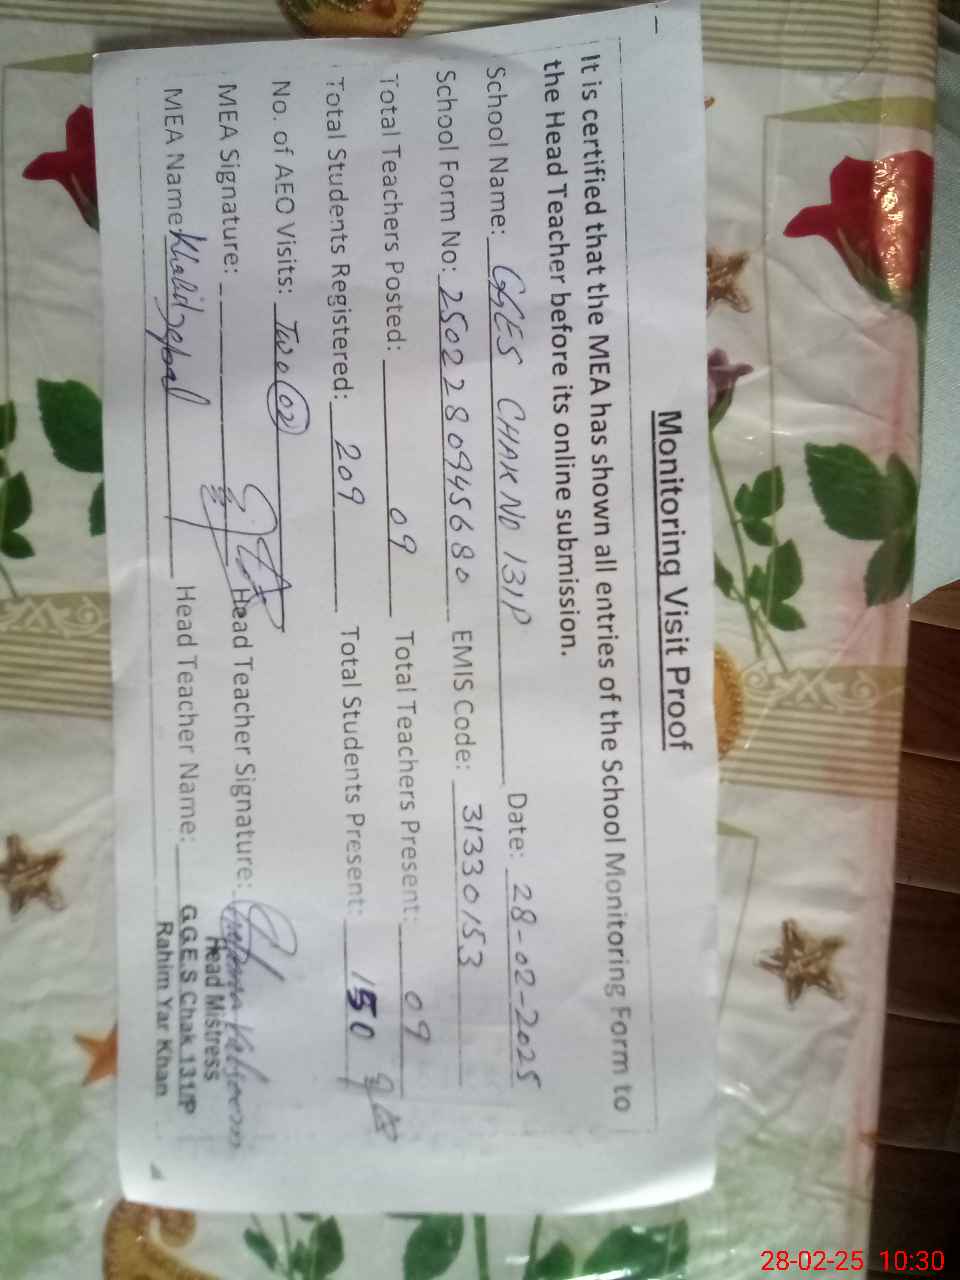 Monitoring Visit Proof
It is certified that the MEA has shown all entries of the School Monitoring Form to
the Head Teacher before its online submission.
School Name: GGES CHAK NO 131P Date: 28-02-2025
School Form No: 25022809945680 EMIS Code: 31330153
Total Teachers Posted: 09 Total Teachers Present: 09
Total Students Registered: 209 Total Students Present: 150
No. of AEO Visits: Two 02
MEA Signature: Head Teacher Signature:
MEA Name: Khalid Head Teacher Name:
Head Mistress
G.G.E.S Chak 131/P
Rahim Yar Khan
28-02-25 10:30